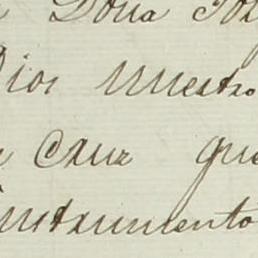 Doña
Dios nuestro
Cruz que
instrumento